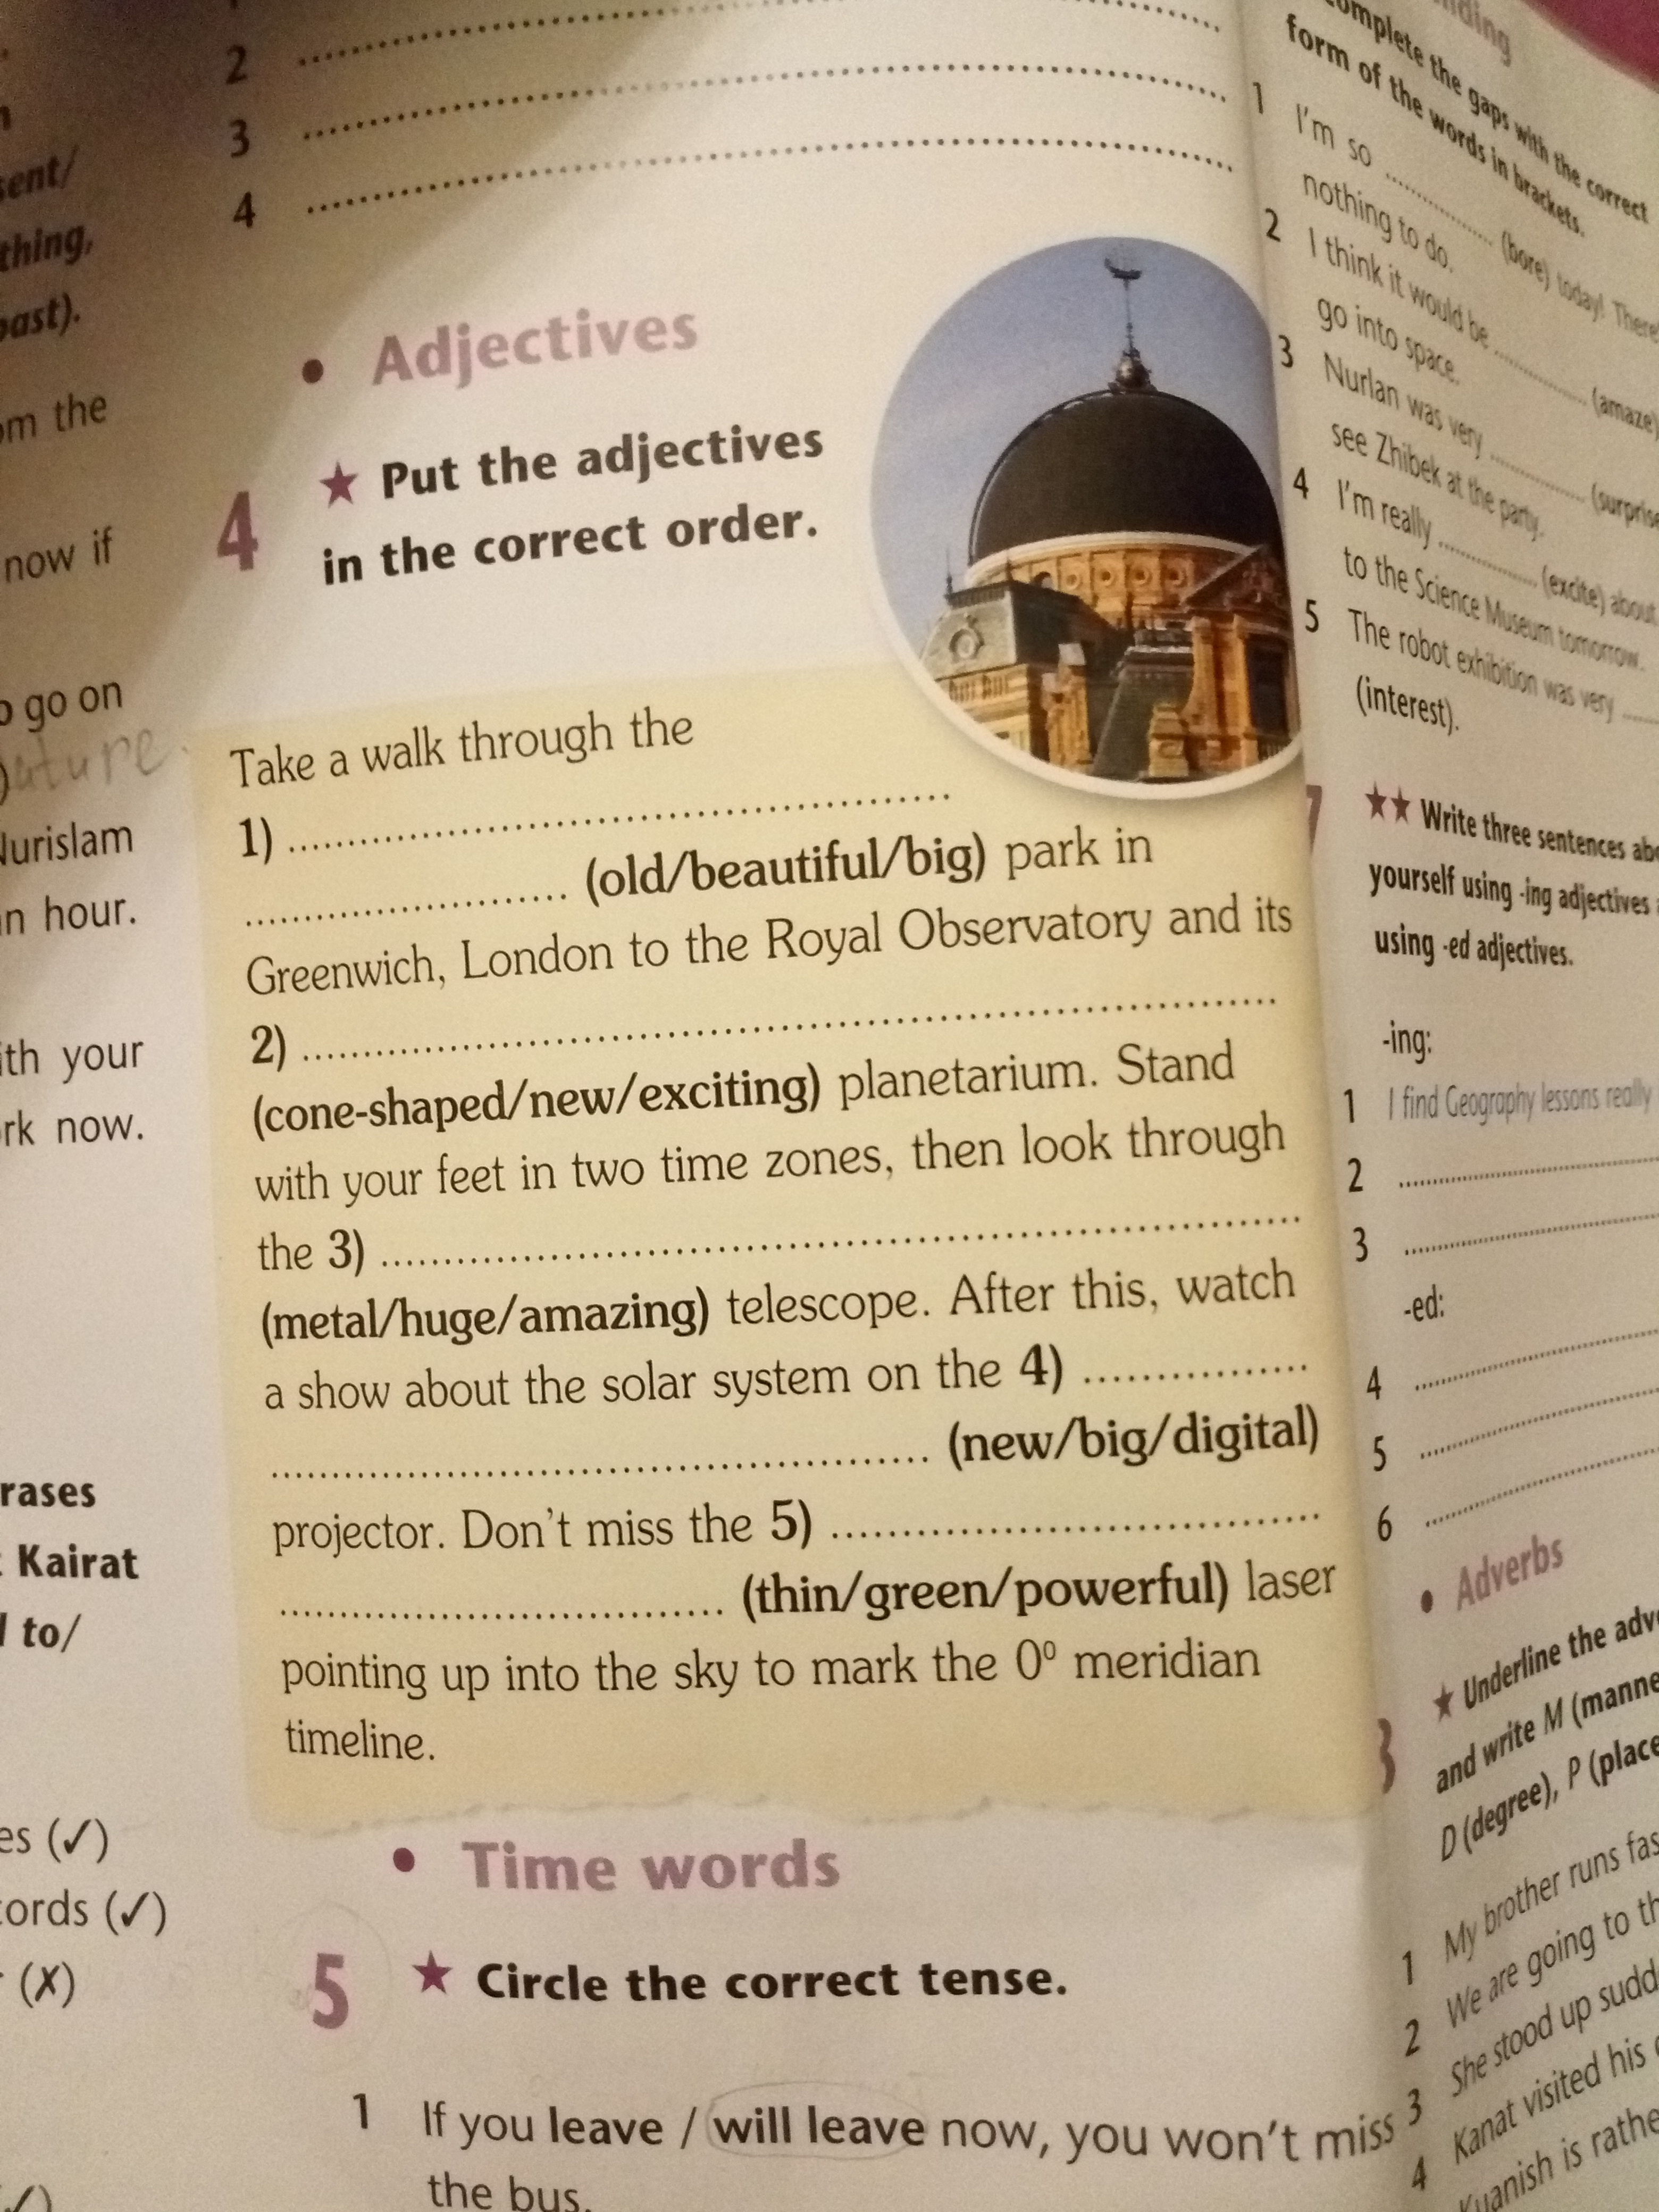 sent/
thing,
past).
om the
now if
o go on
ature
Nurislam
n hour.
ith your
rk now.
rases
Kairat
to/
es (✓)
cords (✓)
(✗)
2
3
4
• Adjectives
4 ★ Put the adjectives
in the correct order.
Take a walk through the
1) ..........
.......... (old/beautiful/big) park in
Greenwich, London to the Royal Observatory and its
2) ..........
(cone-shaped/new/exciting) planetarium. Stand
with your feet in two time zones, then look through
the 3) ..........
(metal/huge/amazing) telescope. After this, watch
a show about the solar system on the 4) ..........
.......... (new/big/digital)
projector. Don't miss the 5) ..........
.......... (thin/green/powerful) laser
pointing up into the sky to mark the 0⁰ meridian
timeline.
• Time words
5 ★ Circle the correct tense.
1 If you leave / will leave now, you won't miss
the bus.
omplete the gaps with the correct
form of the words in brackets.
1 I'm so .......... (bore) today! There
nothing to do.
2 I think it would be .......... (amaze)
go into space.
3 Nurlan was very .......... (surprise
see Zhibek at the party.
4 I'm really .......... (excite) about
to the Science Museum tomorrow.
5 The robot exhibition was very ..........
(interest).
7 ★★ Write three sentences abo
yourself using -ing adjectives
using -ed adjectives.
-ing:
1 I find Geography lessons really
2 ..........
3 ..........
-ed:
4 ..........
5 ..........
6 ..........
• Adverbs
★ Underline the adv
and write M (manne
D (degree), P (place
1 My brother runs fas
2 We are going to th
3 She stood up sudd
4 Kanat visited his
Kuanish is rathe